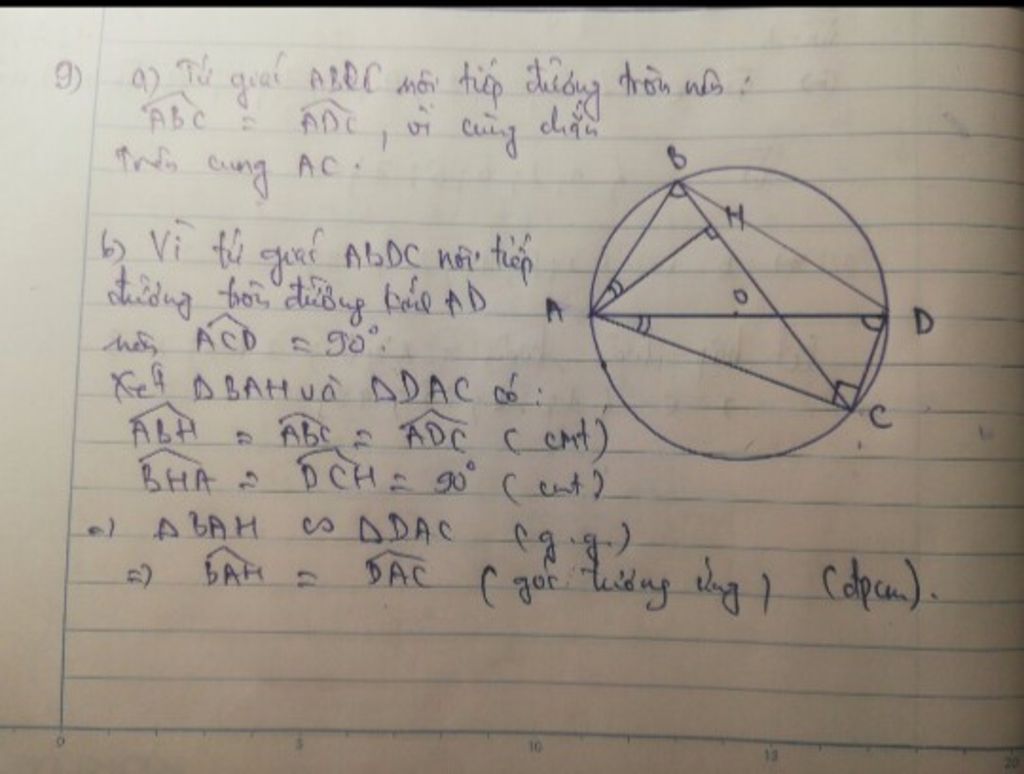 9) a) Tứ giác ABDC nội tiếp đường tròn nên:
ABC = ADC, vì cùng chắn
trên cung AC.
b) Vì tứ giác ABDC nội tiếp
đường tròn đường kính AD
nên ACD = 90°.
Xét ΔBAH và ΔDAC có:
ABH = ABC = ADC (cmt)
BHA = DCH = 90° (cmt)
=) ΔBAH ∽ ΔDAC (g.g.)
=) BAH = DAC (góc tương ứng) (đpcm).
B
H
A
O
D
C
0
5
10
15
20